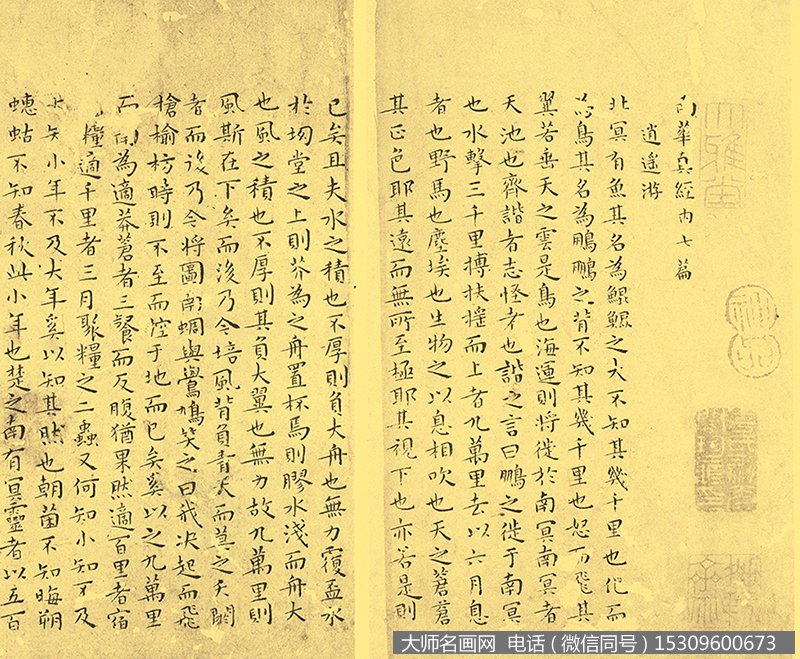 南華真經內七篇
逍遙游
北冥有魚其名為鯤鯤之大不知其幾千里也化而
為鳥其名為鵬鵬之背不知其幾千里也怒而飛其
翼若垂天之雲是鳥也海運則將徙於南冥南冥者
天池也齊諧者志怪者也諧之言曰鵬之徙于南冥
也水擊三千里摶扶搖而上者九萬里去以六月息
者也野馬也塵埃也生物之以息相吹也天之蒼蒼
其正色耶其遠而無所至極耶其視下也亦若是則
已矣且夫水之積也不厚則負大舟也無力覆盃水
於坳堂之上則芥為之舟置杯焉則膠水淺而舟大
也風之積也不厚則其負大翼也無力故九萬里則
風斯在下矣而後乃今培風背負青天而莫之夭閼
者而後乃今將圖南蜩與鷽鳩笑之曰我決起而飛
槍榆枋時則不至而控于地而已矣奚以之九萬里
而南為適莽蒼者三餐而反腹猶果然適百里者宿
糧適千里者三月聚糧之二蟲又何知小知不及
大知小年不及大年奚以知其然也朝菌不知晦朔
蟪蛄不知春秋此小年也楚之南有冥靈者以五百
神品
大师名画网 电话（微信同号）15309600673